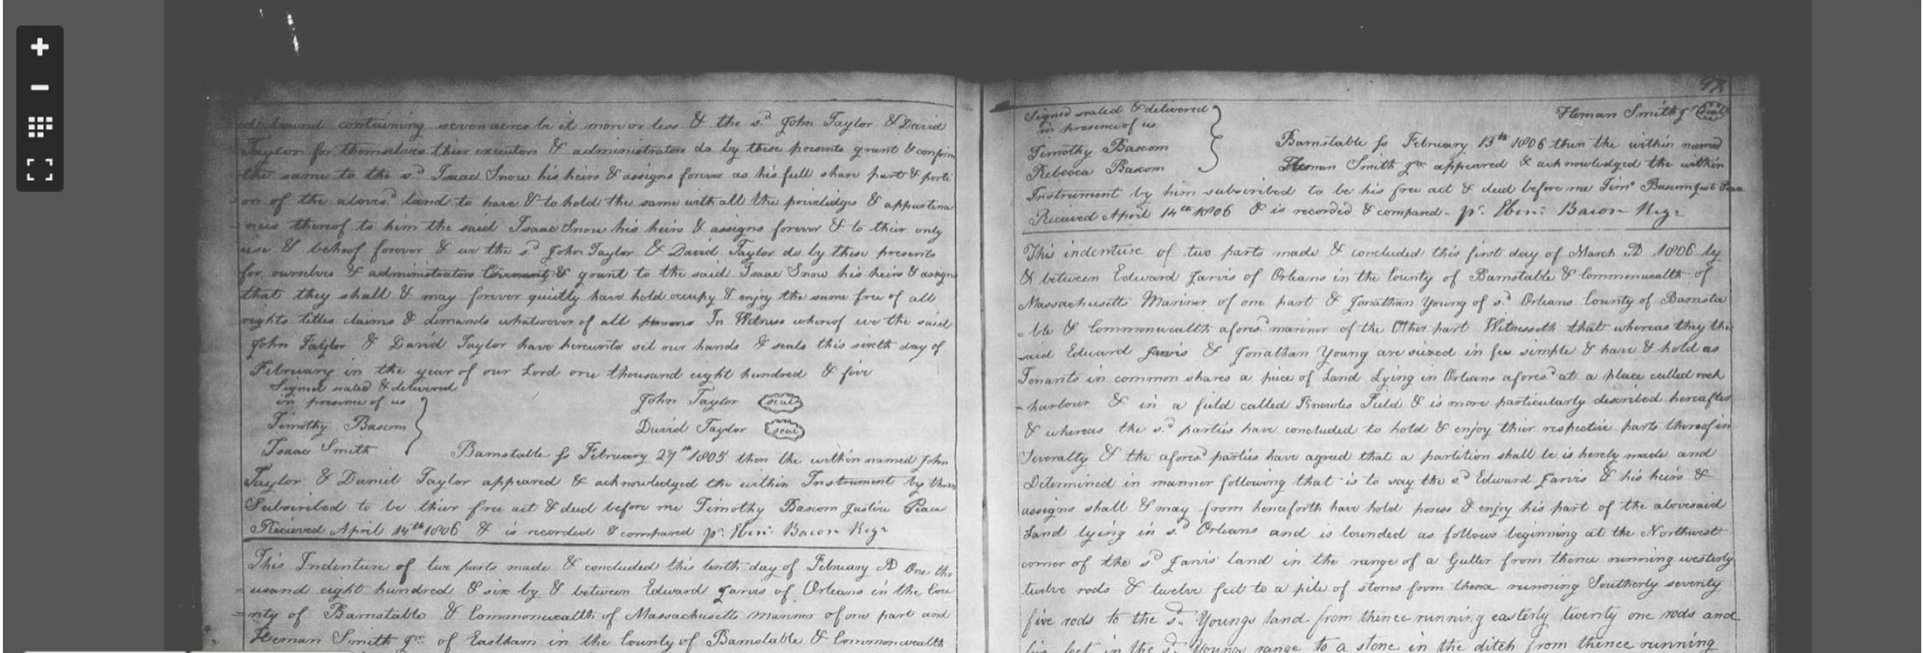 bound containing seven acres be it more or less & the sd John Taylor & David
Taylor for themselves thier executors & administrators do by these presents grant & confirm
the same to the sd Isaac Snow his heirs & assigns forever as his full share part & porti
on of the abovesd land to have & to hold the same with all the priviledges & appurtena
nces thereof to him the said Isaac Snow his heirs & assigns forever & to their only
use & behoof forever & we the sd John Taylor & David Taylor do by these presents
for ourselves & administrators Covenant & grant to the said Isaac Snow his heirs & assigns
that they shall & may forever quietly have hold occupy & enjoy the same free of all
rights titles claims & demands whatsoever of all persons In Witness whereof we the said
John Taylor & David Taylor have hereunto set our hands & seals this sixth day of
February in the year of our Lord one thousand eight hundred & five
Signed sealed & delivered
in presence of us
John Taylor seal
Timothy Bascom
David Taylor seal
Isaac Smith
Barnstable ss February 27th 1805 then the within named John
Taylor & Daniel Taylor appeared & acknowledged the within Instrument by them
Subscribed to be thier free act & deed before me Timothy Bascom Justice Peace
Recieved April 14th 1806 & is recorded & compared pr. Eben: Bacon Regr
This Indenture of two parts made & concluded this tenth day of February AD One tho
usand eight hundred & six by & between Edward Jarvis of Orleans in the Cou
nty of Barnstable & Commonwealth of Massachusetts Mariner of one part and
Heman Smith Jr. of Eastham in the County of Barnstable & Commonwealth
Signed sealed & delivered
in presence of us
Timothy Bascom
Rebecca Bascom
Heman Smith Jr seal
Barnstable ss February 13th 1806 then the within named
Heman Smith Jr appeared & acknowledged the within
Instrument by him subscribed to be his free act & deed before me Timo Bascom Just Peace
Received April 14th 1806 & is recorded & compared - pr. Eben: Bacon Regr
This indenture of two parts made & concluded this first day of March AD 1806 by
& between Edward Jarvis of Orleans in the County of Barnstable & Commonwealth of
Massachusetts Mariner of one part & Jonathan Young of sd Orleans County of Barnsta
-ble & Commonwealth aforesd mariner of the Other part Witnesseth that whereas they the
said Edward Jarvis & Jonathan Young are seized in fee simple & have & hold as
Tenants in common shares a piece of Land Lying in Orleans aforesd at a place called rock
-harbour & in a field called Knowles Field & is more particularly described hereafter
& whereas the sd parties have concluded to hold & enjoy thier respective parts thereof in
Severalty & the aforesd parties have agreed that a partition shall be is hereby made and
Determined in manner following that is to say the sd Edward Jarvis & his heirs &
assigns shall & may from henceforth have hold posess & enjoy his part of the abovesaid
Land lying in sd Orleans and is bounded as follows beginning at the Northwest
corner of the sd Jarvis' land in the range of a Gutter from thence running westerly
twelve rods & twelve feet to a pile of stones from thence running Southerly seventy
five rods to the sd Youngs land from thence running easterly twenty one rods and
feet in the sd Youngs range to a stone in the ditch from thence running